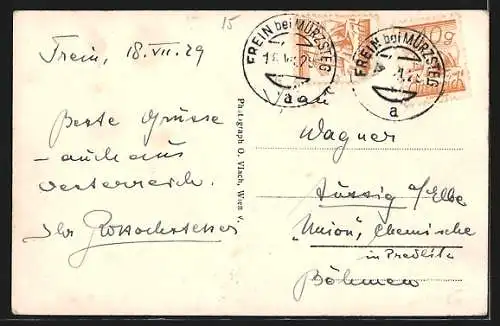 15
Frein, 18.VII.29
FREIN bei MÜRZSTEG
a
FREIN bei MÜRZSTEG
a
Beste Grüsse
- auch aus
Oesterreich.
Ihr
Photograph O. Vlach, Wien V.
Wagner
Aussig a/Elbe
"Union", Chemische
in Predlitz
Böhmen